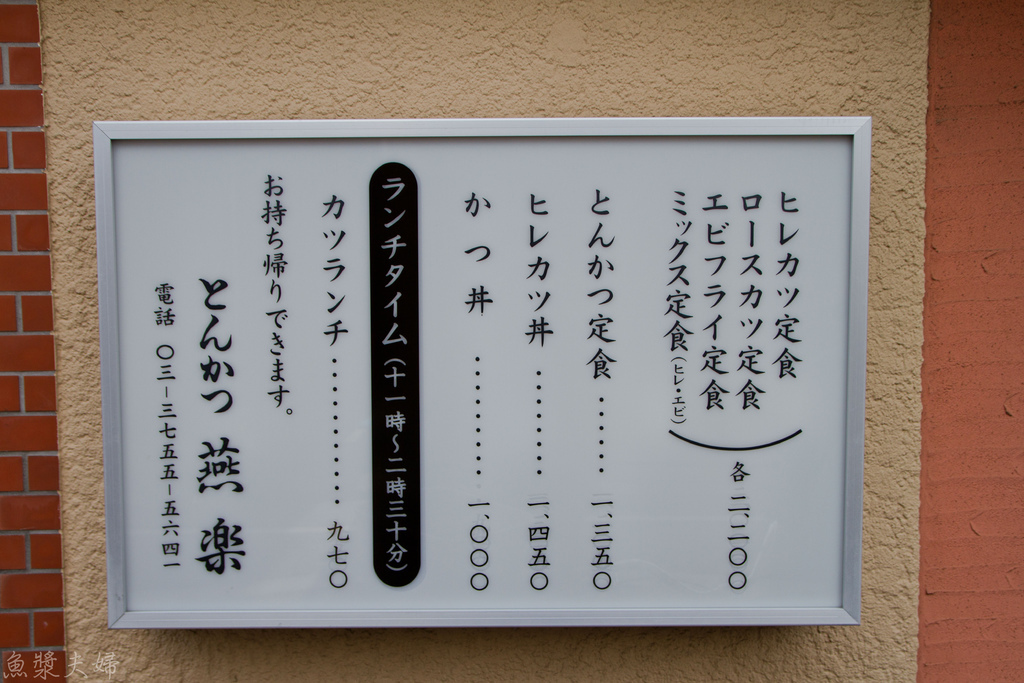 ヒレカツ定食
ロースカツ定食
エビフライ定食
ミックス定食(ヒレ・エビ)
各 二、二〇〇
とんかつ定食・・・・・・一、三五〇
ヒレカツ丼・・・・・・・・一、四五〇
かつ丼・・・・・・・・・一、〇〇〇
ランチタイム(十一時〜二時三十分)
カツランチ・・・・・・・・・・九七〇
お持ち帰りできます。
とんかつ 燕楽
電話 〇三-三七五五-五六四一
魚漿夫婦